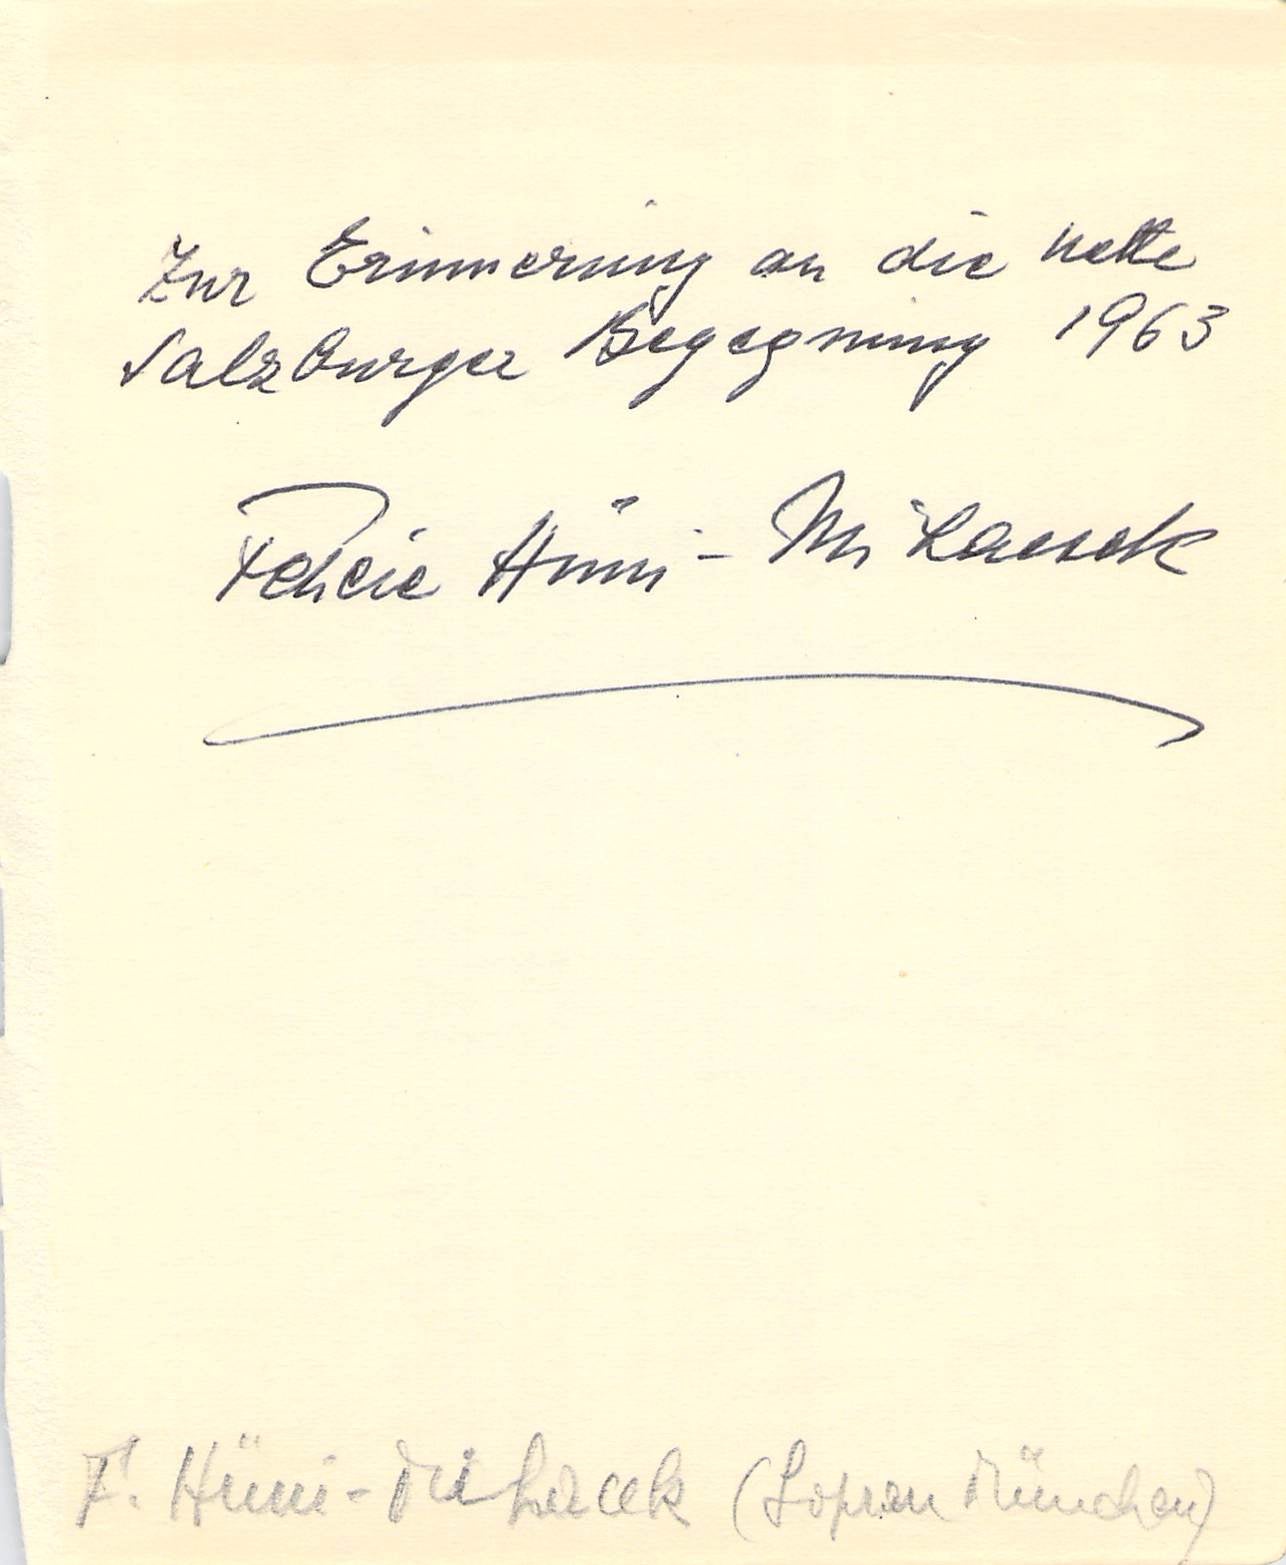 Zur Erinnerung an die nette
Salzburger Begegnung 1963
Felicie Hüni-Mihacsek
F. Hüni-Mihacek (Sopran München)